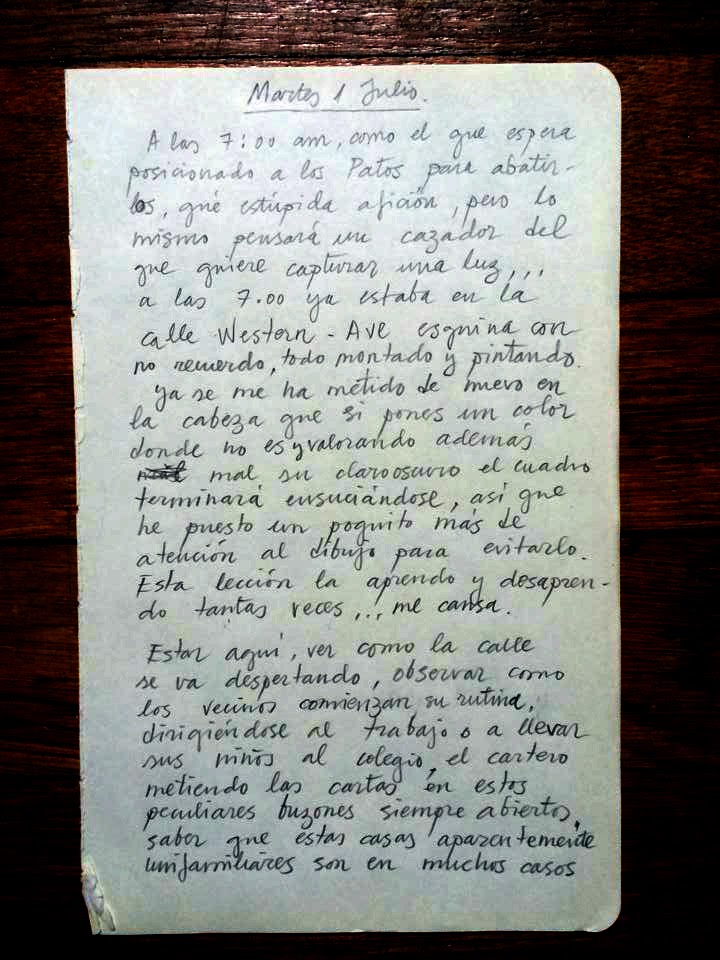 Martes 1 Julio.
A las 7:00 am, como el que espera
posicionado a los Patos para abatir-
los, qué estúpida afición, pero lo
mismo pensará un cazador del
que quiere capturar una luz,..
a las 7.00 ya estaba en la
calle Western - Ave esquina con
no recuerdo, todo montado y pintando.
ya se me ha metido de nuevo en
la cabeza que si pones un color
donde no es y valorando además
mal su claroscuro el cuadro
terminará ensuciándose, así que
he puesto un poquito más de
atención al dibujo para evitarlo.
Esta lección la aprendo y desapren-
do tantas veces,.. me cansa.
Estar aquí, ver como la calle
se va despertando, observar como
los vecinos comienzan su rutina,
dirigiéndose al trabajo o a llevar
sus niños al colegio, el cartero
metiendo las cartas en estos
peculiares buzones siempre abiertos,
saber que estas casas aparentemente
unifamiliares son en muchos casos